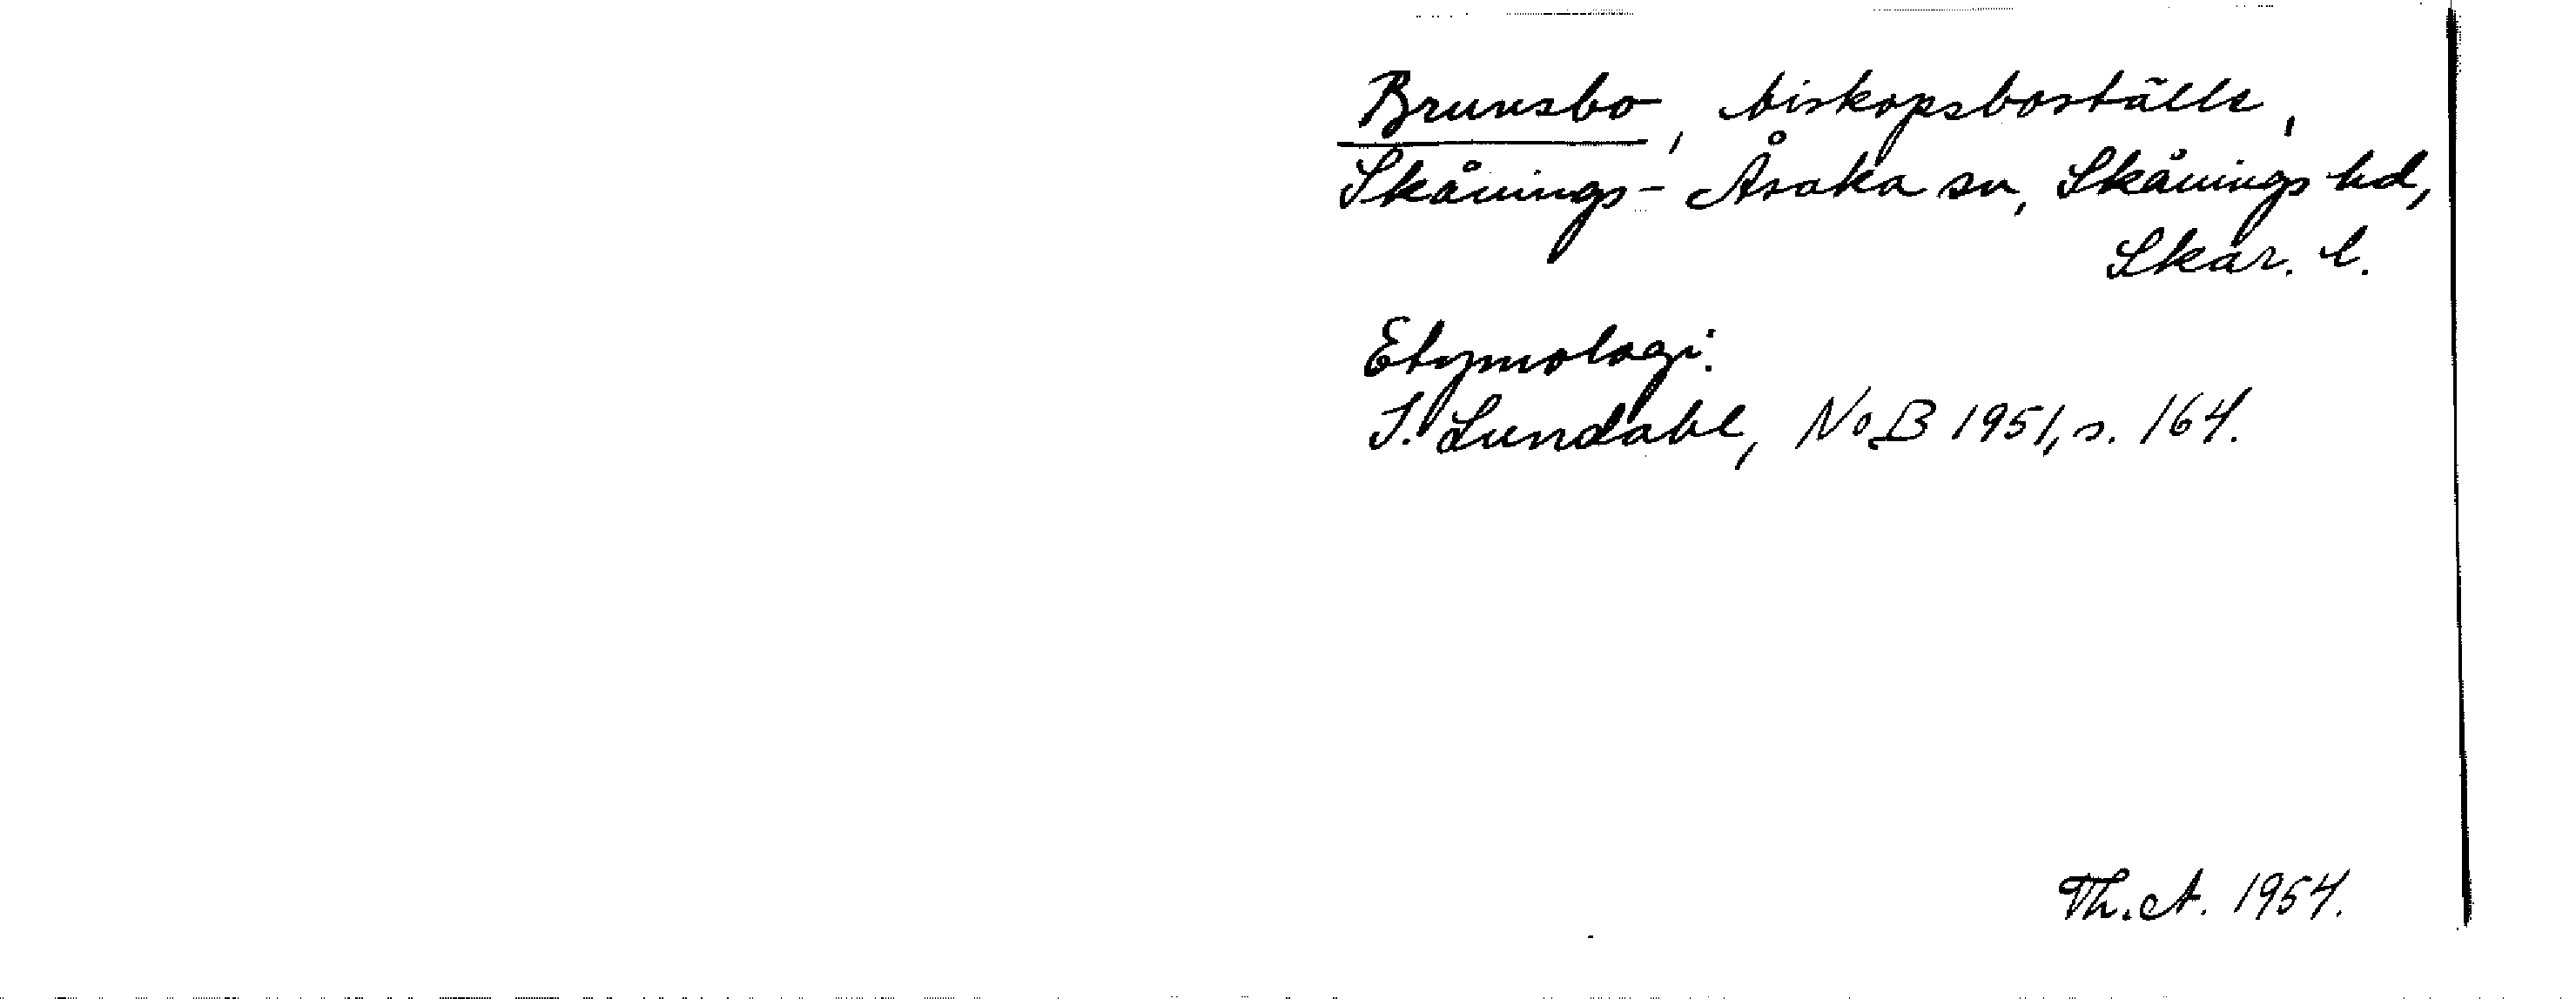 Brunsbo, biskopsboställe,
Skånings-Åsaka sn, Skånings hd,
Skar. l.
Etymologi:
I. Lundahl, NoB 1951, s. 164.
Th. A. 1954.